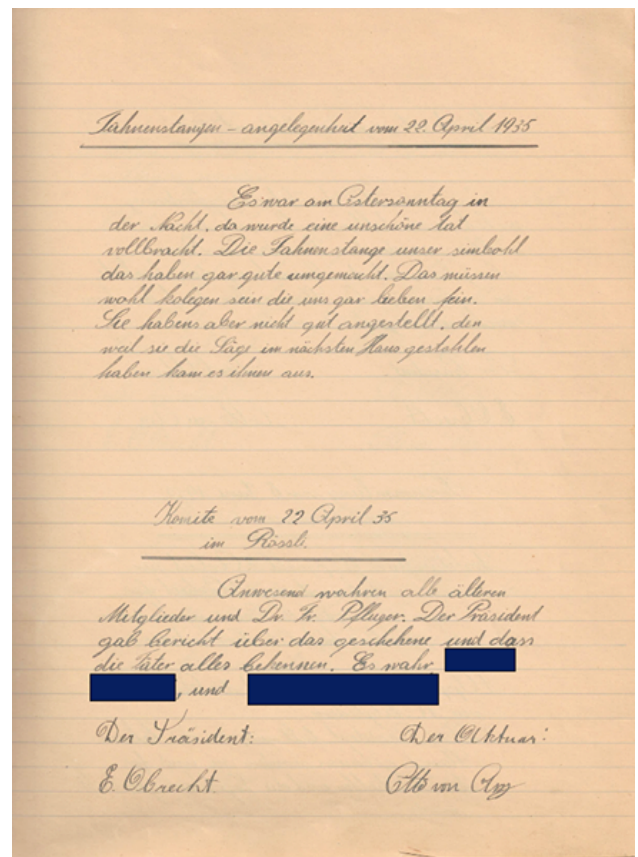 Fahnenstangen - angelegenheit vom 22. April 1935
Es war am Ostersonntag in
der Nacht, da wurde eine unschöne tat
vollbracht. Die Fahnenstange unser simbohl
das haben gar gute umgemacht. Das müssen
wohl kolegen sein die uns gar lieben fein.
Sie habens aber nicht gut angestellt, den
weil sie die Säge im nächsten Haus gestohlen
haben kam es ihnen aus.
Komite vom 22 April 35
im Rössli.
Anwesend wahren alle älteren
Mitglieder und Dr. Fr. Pfluger. Der Präsident
gab bericht über das geschehene und dass
die Täter alles bekennen. Es wahr
, und
Der Präsident: Der Aktuar:
E. Obrecht Otto von